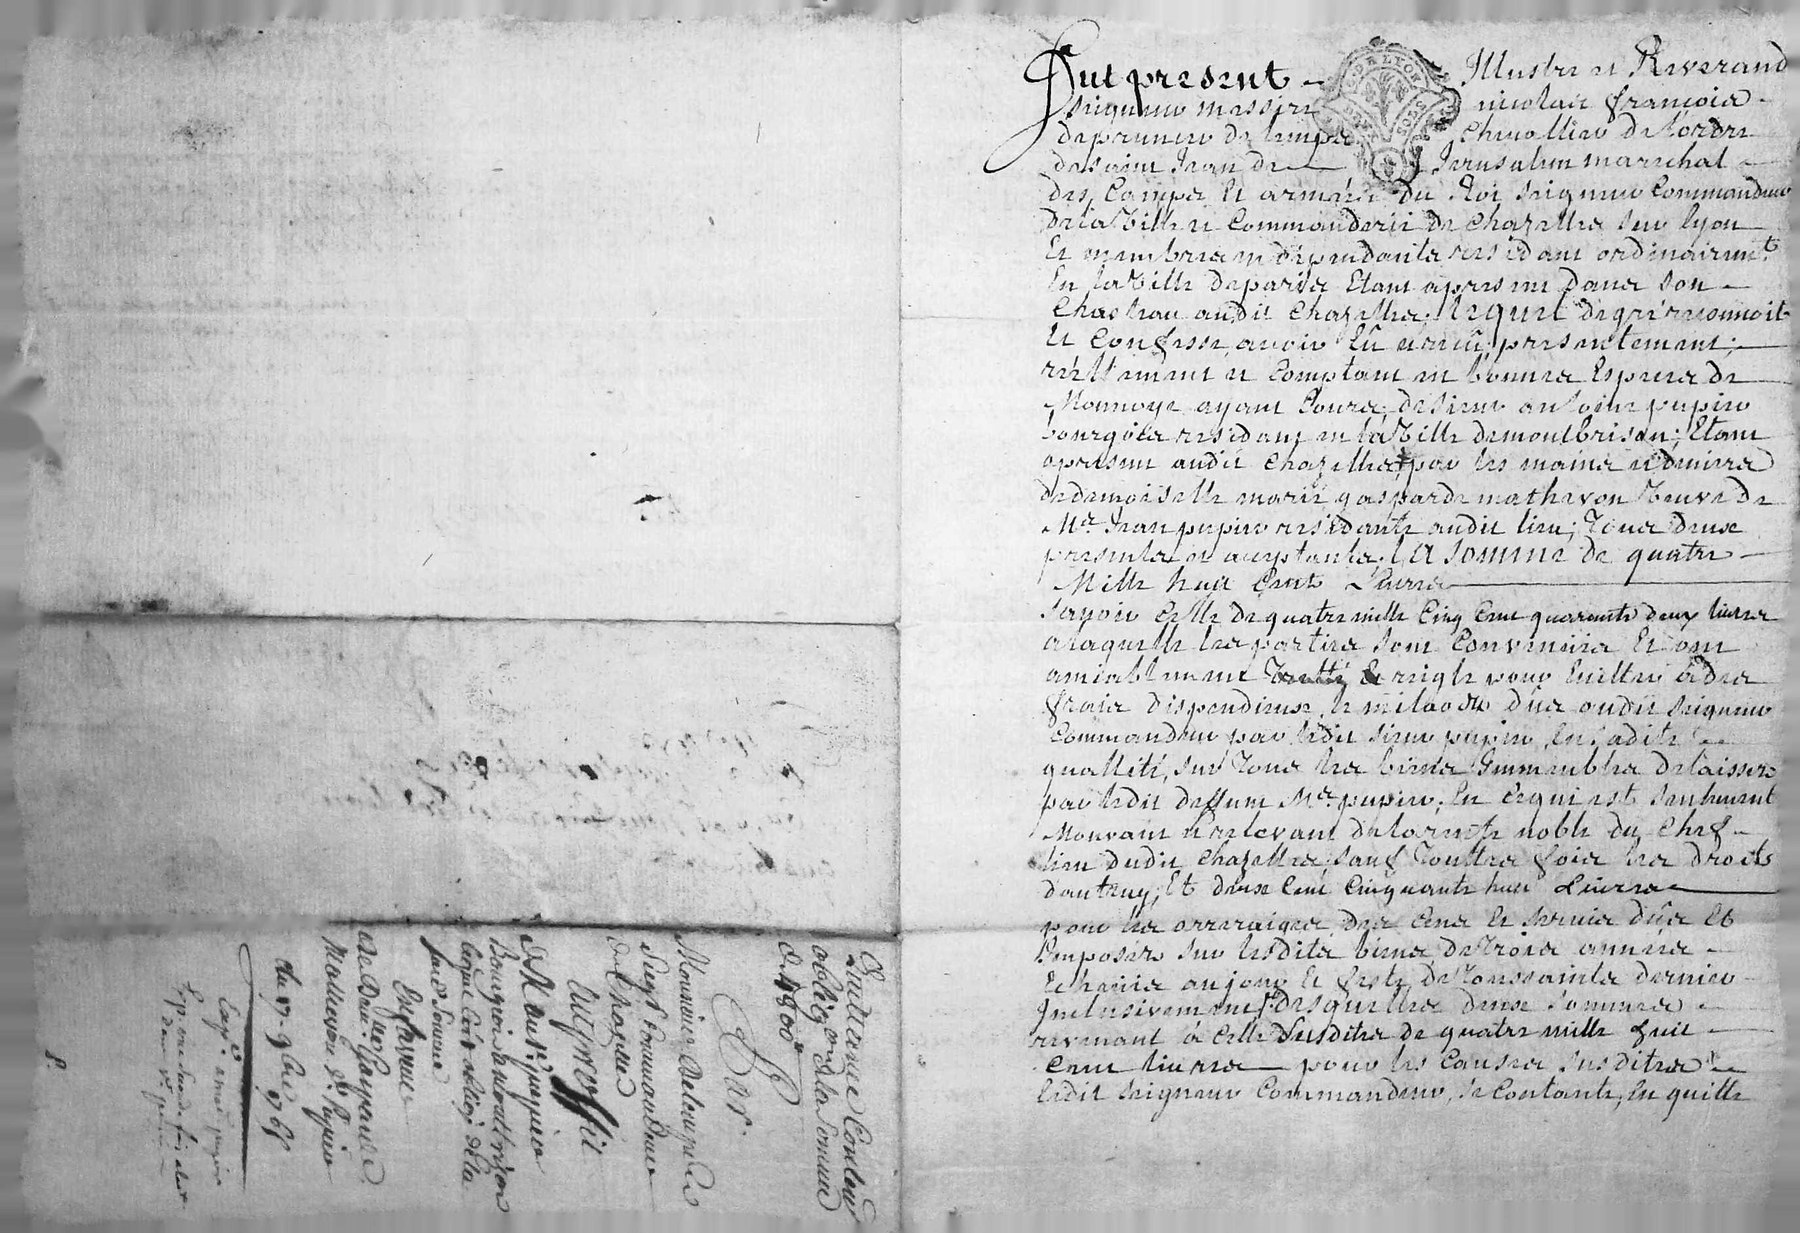 Fut present Illustre et Reverand
seigneur messire nicolas françois
de prunier de lemps chevallier de l'ordre
de saint Jean de Jerusalem marechal
des Camps et armées du Roi seigneur Commandeur
de la Ville et Commanderie de Chazelles sur lyon
Et membres en dépendants residant ordinairemt
En la Ville de paris Etant apresent dans son
Chasteau audit Chazelles; lequel de gré reconnoit
Et Confesse avoir Eû et reçû presentement;
réellement et Comptant en bonnes Espeses de
Monnoye ayant Cours, de sieur antoine pupier
bourgois residant en la Ville de montbrison; Etant
apresent audit Chazelles, par les mains et deniers
de demoiselle marie gasparde mathevon Veuve de
Mr. Jean pupier residante audit lieu; Tous deux
presents et acceptants; la somme de quatre
Mille huit Cent Livres
sayoir Celle de quatre mille Cinq Cent quarante deux livres
a laquelle les parties sont Convenües Et ont
amiablement Traitté Et reiglé pour Eviter à des
frais dispendieux, le milaods dûs audit seigneur
Commandeur par ledit sieur pupier, En sadite
quallité, sur Tous les biens Immeubles delaissés
par ledit deffunt Mr. pupier; En Ce qui est seullement
Mouvant et relevant de la rente noble du Chef
lieu dudit Chazelles; sauf Touttes fois les droits
d'autruy; Et deux Cent Cinquante huit Livres
pour les arreraiges des Cens Et servis dûs Et
Imposés sur lesdits biens de Trois années
Echeües au jour Et feste de Toussaints dernier
Inclusivement; desquelles deux sommes
revenant à Celle susditte de quatre mille huit
Cent livres pour les Causes susdittes
ledit seigneur Commandeur, se Contante, En quitte
Quittance Contenant
obligaon de la somme
de 4800 lt
Par
Monsieur Delemps
Seigr Commandeur
de Chazelle
Au proffit
de Mr Antne pupier
Bourgeois de montbrison
lequel s'est obligé de la
ditte somme
En faveur
de De Marie Gasparde
Mathevon Ve Pupier
du 17 9bre 1768
8